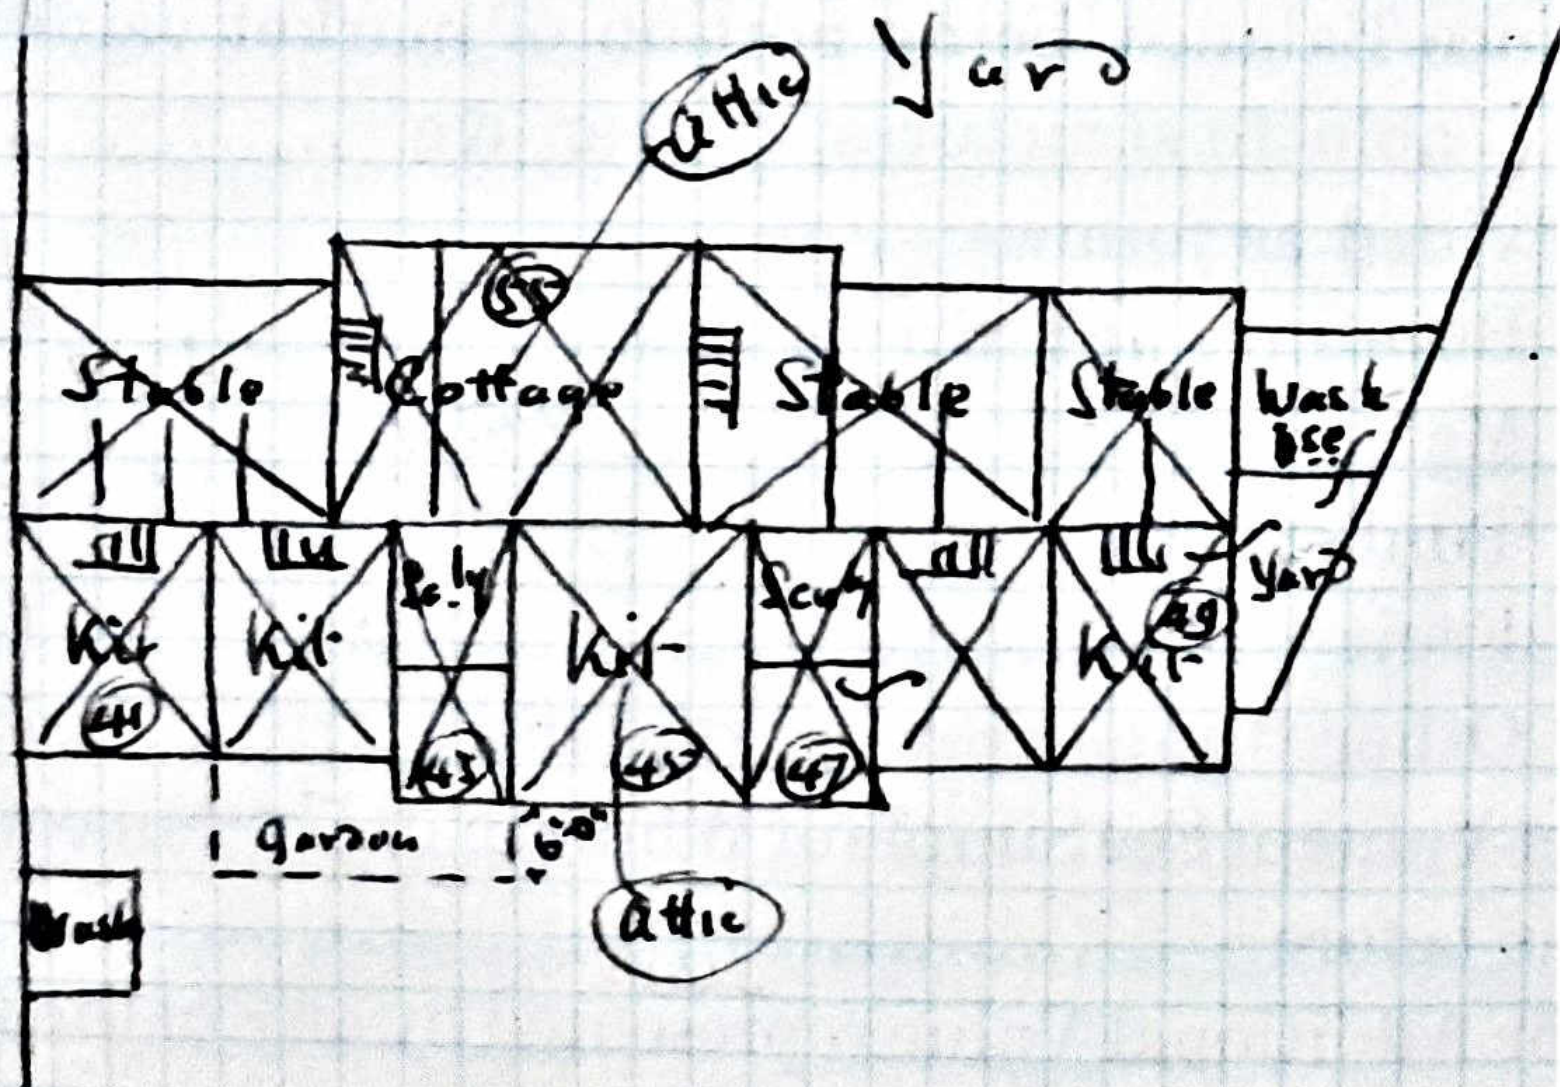 Yard
Attic
55
Stable Cottage Stable Stable Wash
hse
Scly Scuy Yard
Kit Kit Kit Kit
49
41 43 45 47
Garden 6'-0"
Attic
Wash